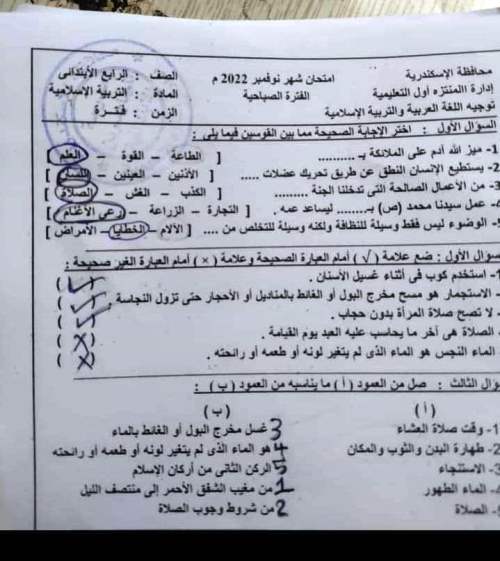 محافظة الإسكندرية
إدارة المنتزه أول التعليمية
توجيه اللغة العربية والتربية الإسلامية
امتحان شهر نوفمبر 2022 م
الفترة الصباحية
الصف : الرابع الابتدائى
المادة : التربية الإسلامية
الزمن : فترة
السؤال الأول : اختر الإجابة الصحيحة مما بين القوسين فيما يلى :
1- ميز الله آدم على الملائكة بـ ........... [ الطاعة – القوة – العلم ]
2- يستطيع الإنسان النطق عن طريق تحريك عضلات ..... [ الأذنين – العينين – اللسان ]
3- من الأعمال الصالحة التى تدخلنا الجنة ......... [ الكذب – الغش – الصلاة ]
4- عمل سيدنا محمد (ص) بـ........ ليساعد عمه . [ التجارة – الزراعة – رعي الأغنام ]
- الوضوء ليس فقط وسيلة للنظافة ولكنه وسيلة للتخلص من .... [ الآلام – الخطايا – الأمراض ]
سؤال الأول : ضع علامة ( √ ) أمام العبارة الصحيحة وعلامة ( × ) أمام العبارة الغير صحيحة :
- استخدم كوب فى أثناء غسيل الأسنان . ( ✓ )
- الاستجمار هو مسح مخرج البول أو الغائط بالمناديل أو الأحجار حتى تزول النجاسة . ( ✓ )
- لا تصح صلاة المرأة بدون حجاب . ( ✓ )
- الصلاة هى آخر ما يحاسب عليه العبد يوم القيامة . ( × )
الماء النجس هو الماء الذى لم يتغير لونه أو طعمه أو رائحته . ( × )
ؤال الثالث : صل من العمود ( أ ) ما يناسبه من العمود ( ب ) :
( أ ) ( ب )
1- وقت صلاة العشاء 3 غسل مخرج البول أو الغائط بالماء
2- طهارة البدن والثوب والمكان 4 هو الماء الذى لم يتغير لونه أو طعمه أو رائحته
3- الاستنجاء 5 الركن الثانى من أركان الإسلام
- الماء الطهور 1 من مغيب الشفق الأحمر إلى منتصف الليل
- الصلاة 2 من شروط وجوب الصلاة